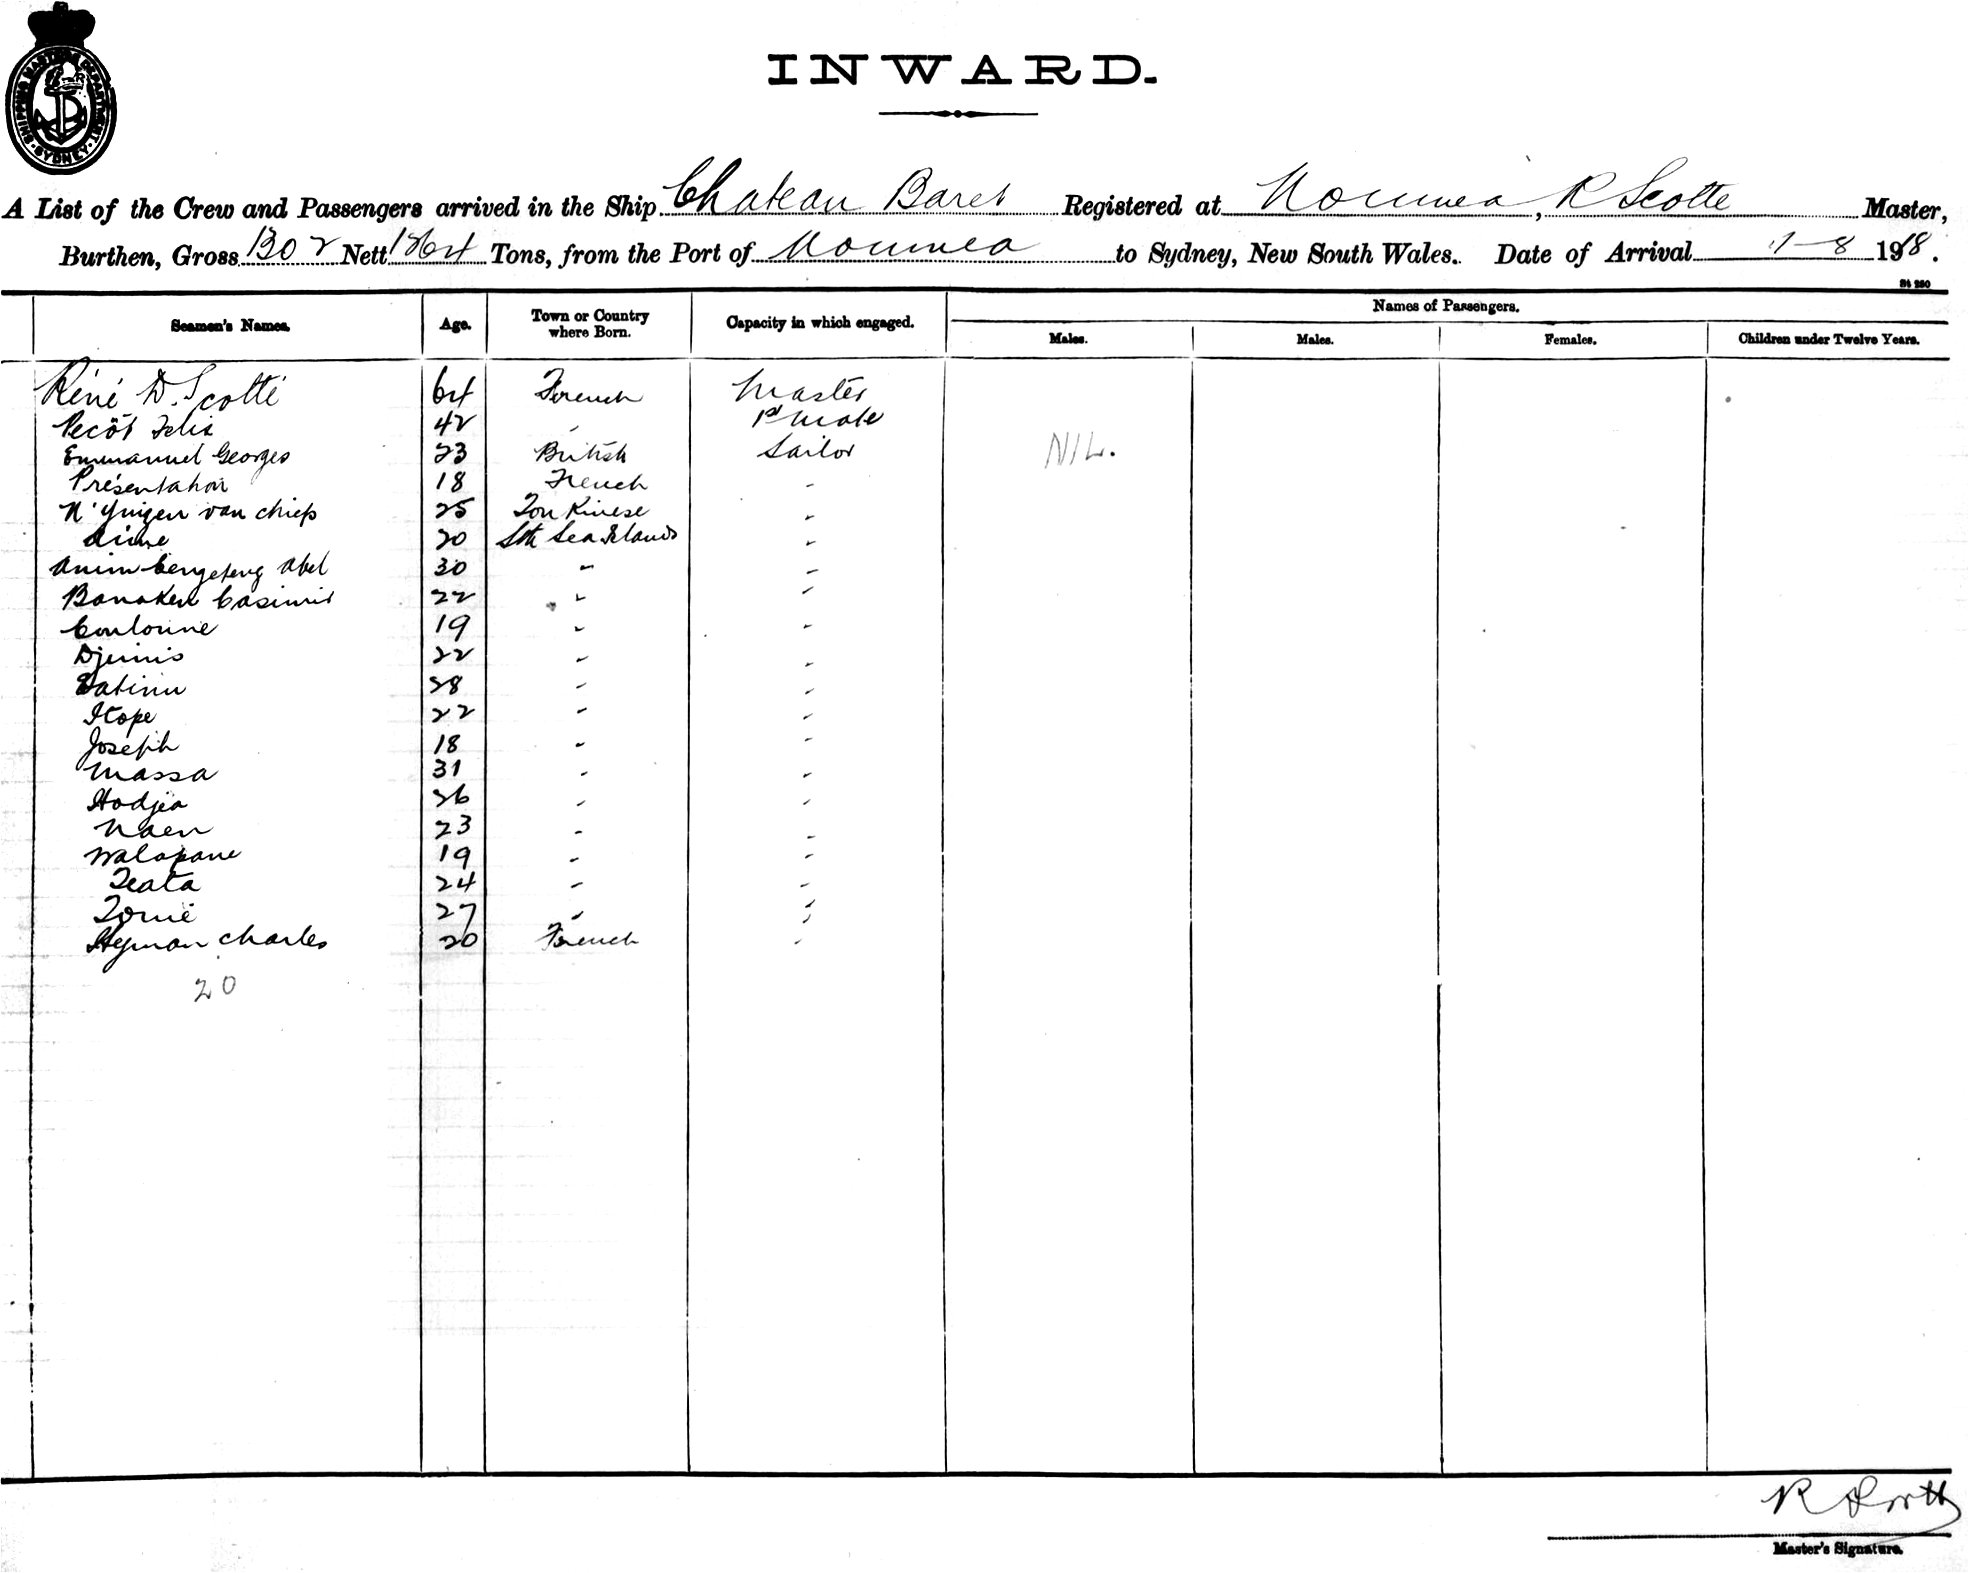 SHIPPING MASTERS DEPARTMENT · SYDNEY ·
INWARD.
A List of the Crew and Passengers arrived in the Ship Chateau Baret Registered at Noumea, R Scotte Master,
Burthen, Gross 1302 Nett 1264 Tons, from the Port of Noumea to Sydney, New South Wales. Date of Arrival 7-8 1918.
St 280
Seamen's Names. Age. Town or Country where Born. Capacity in which engaged. Names of Passengers.
Males. Males. Females. Children under Twelve Years.
Réné D. Scotte 64 French Master
Pecôt Felix 42 " 1st Mate
Emmanuel Georges 23 British Sailor NIL.
Présentation 18 French "
N'Yuigen van chiep 25 Ton Kinese "
Aime 20 Sth Sea Islands "
Abel 30 " "
Banaken Casimir 22 " "
Coulonne 19 " "
Djimis 22 " "
28 " "
Itope 22 " "
Joseph 18 " "
Massa 31 " "
Hodjea 26 " "
Naen 23 " "
Walapane 19 " "
Teata 24 " "
Tomé 27 " "
Heyman Charles 20 French "
20
Master's Signature.